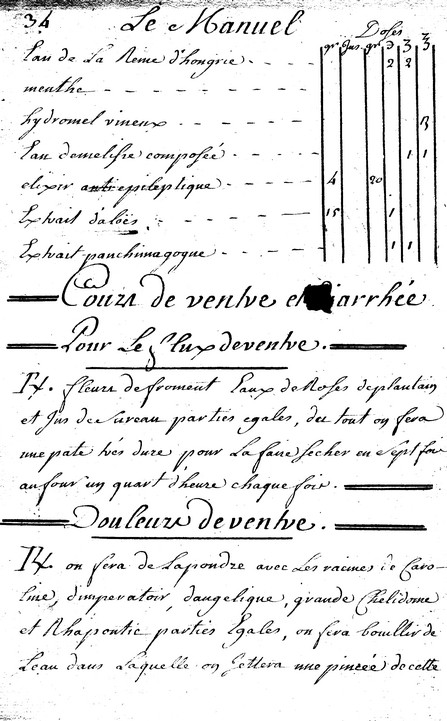 34 Le Manuel
Doses
gr jus. gr ℈ ʒ ℥
Eau de La Reine d'hongrie - - - 2 2
menthe - - - - - - -
hydromel vineux - - - - - ʒ
Eau demelisse composée - - - 1 1
elixir antiepileptique - - - 4 20
Extrait d'aloës - - - 15 1
Extrait panchimagogue - - - 1 1
Cours de ventre et diarrhée
Pour Le flux de ventre.
℞. fleurs de froment Eaux de Roses de plantain
et Jus de Sureau parties egales, du tout on fera
une pate trés dure pour La faire Secher en Sept fois
au four un quart d'heure chaque fois.
Douleurs de ventre.
℞. on fera de La poudre avec Les racines de Caro-
line, d'imperatoir, d'angelique, grande Chelidoine
et Rhapontic parties Egales, on fera bouillir de
L'eau dans Laquelle on Jettera une pincée de cette